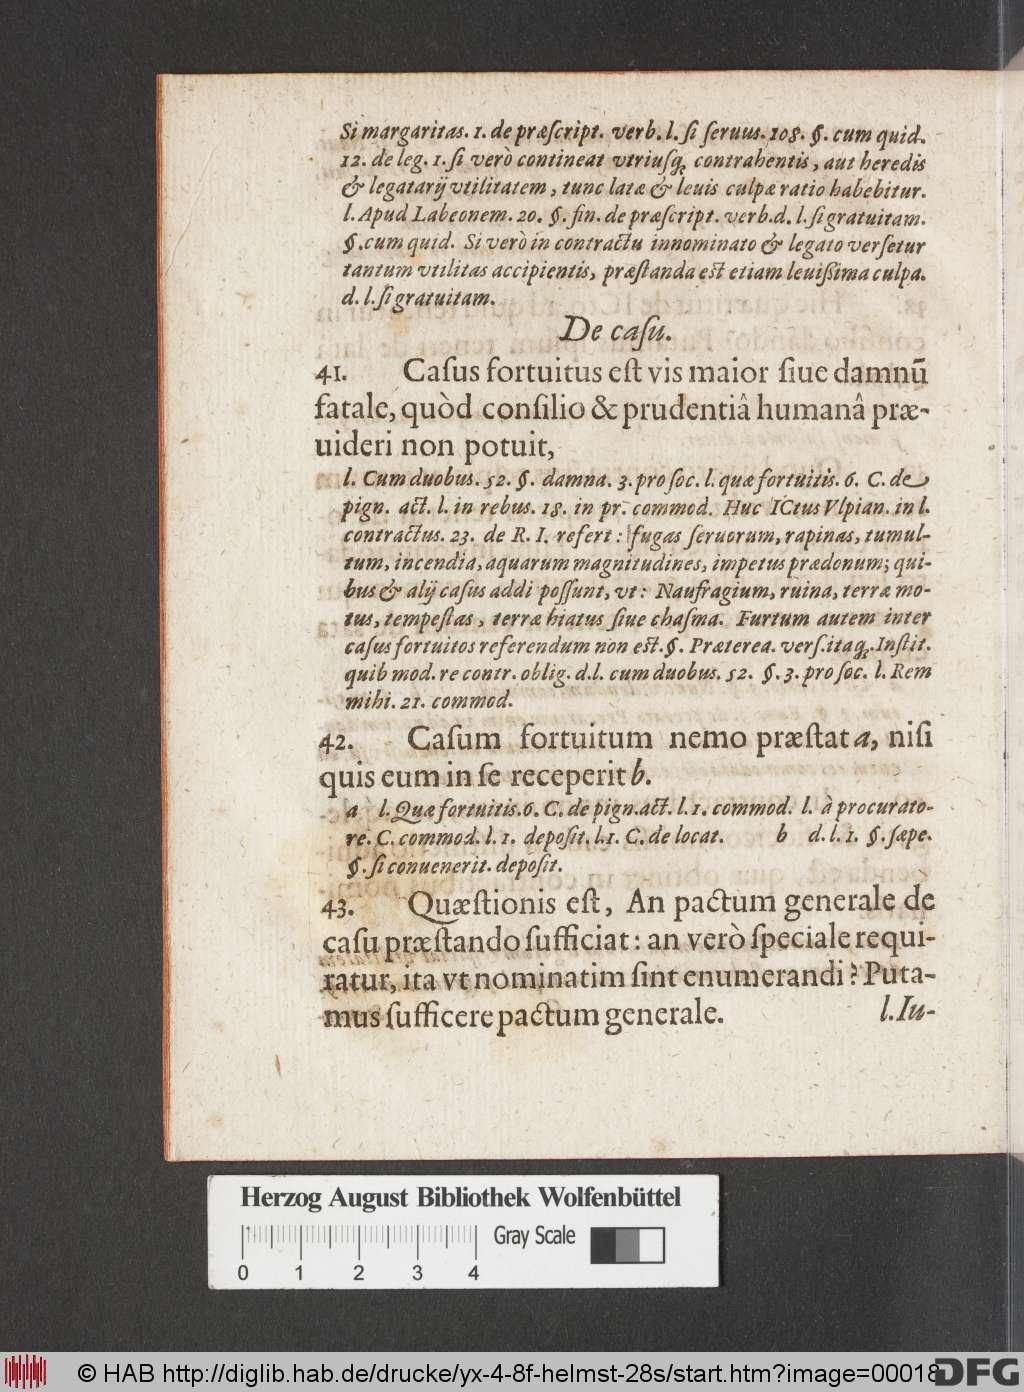 Si margaritas. 1. de præſcript. verb. l. ſi ſeruus. 108. §. cum quid.
12. de leg. 1. ſi verò contineat vtriuſq; contrahentis, aut heredis
& legatarij vtilitatem, tunc latæ & leuis culpæ ratio habebitur.
l. Apud Labeonem. 20. §. fin. de præſcript. verb. d. l. ſi gratuitam.
§. cum quid. Si verò in contractu innominato & legato verſetur
tantum vtilitas accipientis, præſtanda eſt etiam leuiſsima culpa.
d. l. ſi gratuitam.
De caſu.
41. Caſus fortuitus eſt vis maior ſiue damnū
fatale, quòd conſilio & prudentiâ humanâ præ-
uideri non potuit,
l. Cum duobus. 52. §. damna. 3. pro ſoc. l. quæ fortuitis. 6. C. de
pign. act. l. in rebus. 18. in pr. commod. Huc ICtus Vlpian. in l.
contractus. 23. de R. I. refert: fugas ſeruorum, rapinas, tumul-
tum, incendia, aquarum magnitudines, impetus prædonum; qui-
bus & alij caſus addi poſſunt, vt: Naufragium, ruina, terræ mo-
tus, tempeſtas, terræ hiatus ſiue chaſma. Furtum autem inter
caſus fortuitos referendum non eſt. §. Præterea. verſ. itaq;. Inſtit.
quib mod. re contr. oblig. d. l. cum duobus. 52. §. 3. pro ſoc. l. Rem
mihi. 21. commod.
42. Caſum fortuitum nemo præſtat a, niſi
quis eum in ſe receperit b.
a l. Quæ fortuitis. 6. C. de pign. act. l. 1. commod. l. à procurato-
re. C. commod. l. 1. depoſit. l. 1. C. de locat. b d. l. 1. §. ſæpe.
§. ſi conuenerit. depoſit.
43. Quæſtionis eſt, An pactum generale de
caſu præſtando ſufficiat: an verò ſpeciale requi-
ratur, ita vt nominatim ſint enumerandi? Puta-
mus ſufficere pactum generale. l. Iu-
Herzog August Bibliothek Wolfenbüttel
Gray Scale
0 1 2 3 4
© HAB http://diglib.hab.de/drucke/yx-4-8f-helmst-28s/start.htm?image=00018
DFG